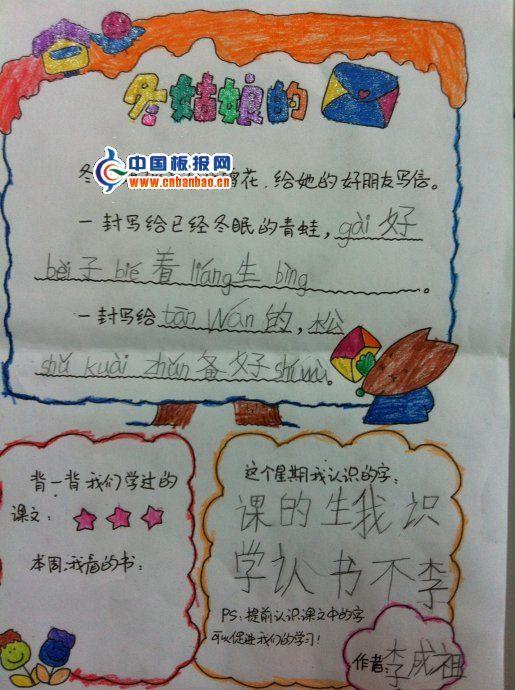 冬姑娘的
中国板报网
www.cnbanbao.cn
冬 花,给她的好朋友写信。
一封写给已经冬眠的青蛙,gài好
bèi子bié着liáng生bìng。
一封写给tān Wán的,松
shǔ kuài zhǔn备好shí wù。
背一背我们学过的
课文:
本周,我看的书:
这个星期我认识的字:
课的生我识
学认书不李
PS:提前认识课文中的字
可以促进我们的学习!
作者李成祖